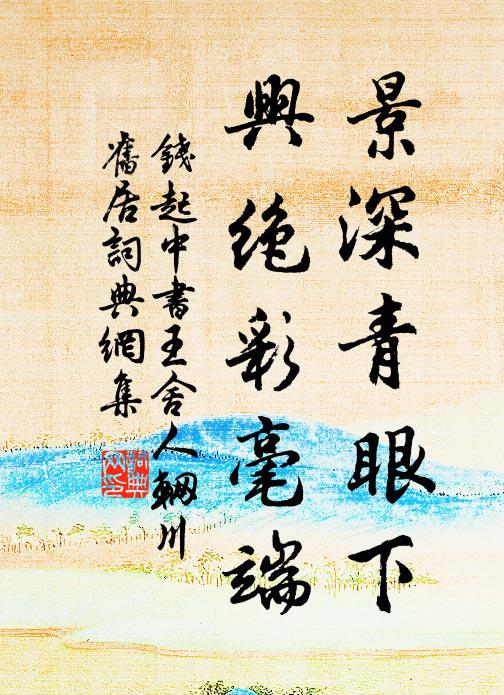 景深青眼下
興絕彩毫端
錢起中書王舍人輞川
舊居詞典網集